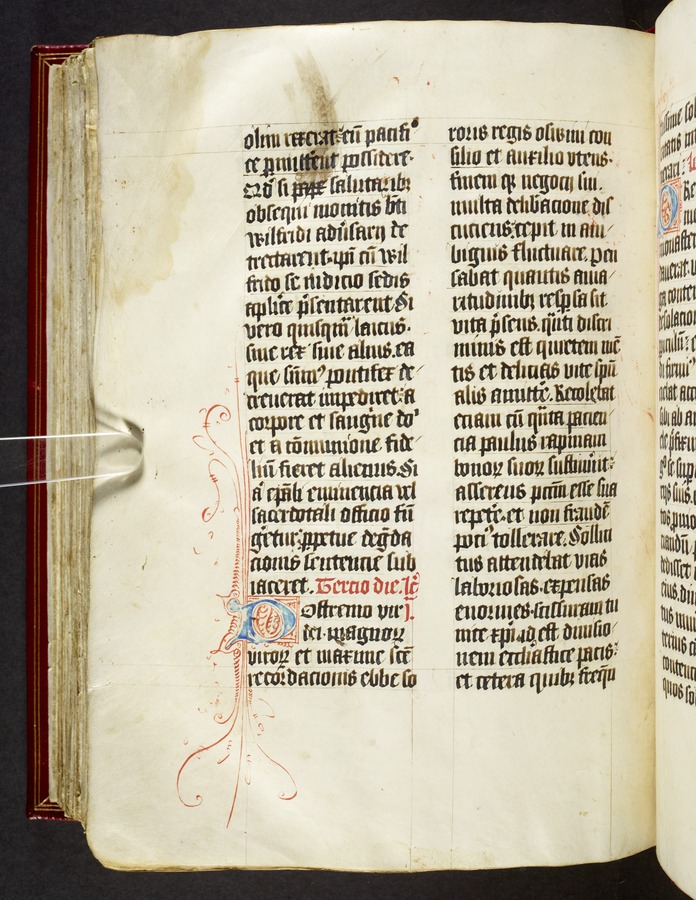 olim rexerat: eū pacifi
ce ꝑmitterēt possidere.
Qd̓ si pape salutaribꝫ
obsequi monitis bt̄i
wilfridi adūsarij de
trectarent. ip̄i cū wil
frido se iudicio sedis
aplīce p̄sentarent. Si
vero quisqm̄ laicus.
siue rex siue alius. ea
que sūmꝰ pontifex de
creuerat impediret: a
corpore et sanguīe do
et a cōmunione fide
liū fieret alienus. Si
sacerdotali officio fū
geretur: ꝑpetue deg̓da
cionis sentencie sub
iaceret. Tercio die. lc̄
Postremo vir i.
dei. magnorꝝ
virorꝝ et maxime scē
recordacionis ebbe so
roris regis oswini con
silio et auxilio vtens.
finem qꝫ negocij sui.
multa delibacione dis
cuciens: cepit in am
biguis fluctuare. Pen
sabat quantis ama
ritudinibꝫ respersa sit
vita p̄sens. qn̄ti discri
minis est quietem mē
tis et delicias vite sp̄u
alis amittē. Recolebat
eciam cū qn̄ta pacien
cia paulus rapinam
bonorꝝ suorꝝ sustinuit:
asserens pctm̄ esse sua
repetē. et non fraudē
pociꝰ tollerare. Sollici
tus attendebat vias
laboriosas. expensas
enormes. scissuram tu
nice xp̄i. id est diuisio
nem eccliāstice pacis:
et cetera quibꝫ freqū